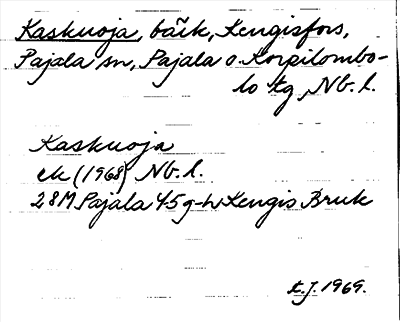 Kaskuoja, bäik, Kengisfors,
Pajala sn, Pajala o. Korpilombo-
lo tg, Nb. l.
Kaskuoja
ek (1968) Nb. l.
28M Pajala 45g-h Kengis Bruk
t.J. 1969.